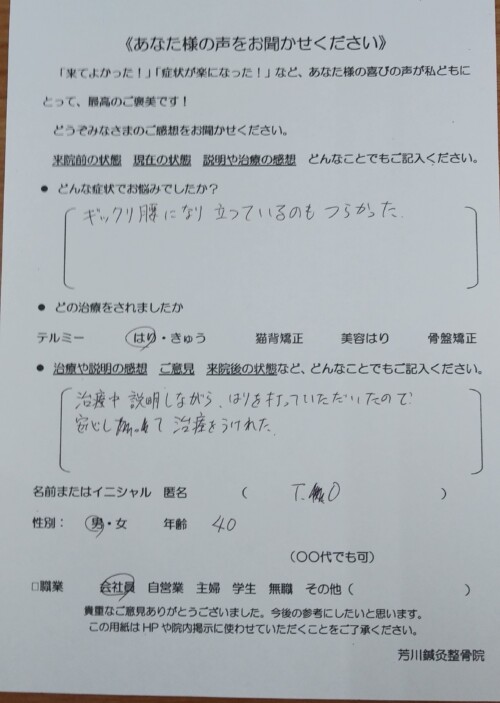 《あなた様の声をお聞かせください》
「来てよかった！」「症状が楽になった！」など、あなた様の喜びの声が私どもに
とって、最高のご褒美です！
どうぞみなさまのご感想をお聞かせください。
来院前の状態　現在の状態　説明や治療の感想　どんなことでもご記入ください。
● どんな症状でお悩みでしたか？
ギックリ腰になり 立っているのも つらかった.
● どの治療をされましたか
テルミー　はり・きゅう　猫背矯正　美容はり　骨盤矯正
● 治療や説明の感想　ご意見　来院後の状態など、どんなことでもご記入ください。
治療中 説明しながら、はりを打っていただいたので
安心して 治療をうけれた.
名前またはイニシャル　匿名　（　T.O　）
性別：　男・女　年齢　40
（〇〇代でも可）
□職業　会社員　自営業　主婦　学生　無職　その他（　）
貴重なご意見ありがとうございました。今後の参考にしたいと思います。
この用紙はHPや院内掲示に使わせていただくことをご了承ください。
芳川鍼灸整骨院